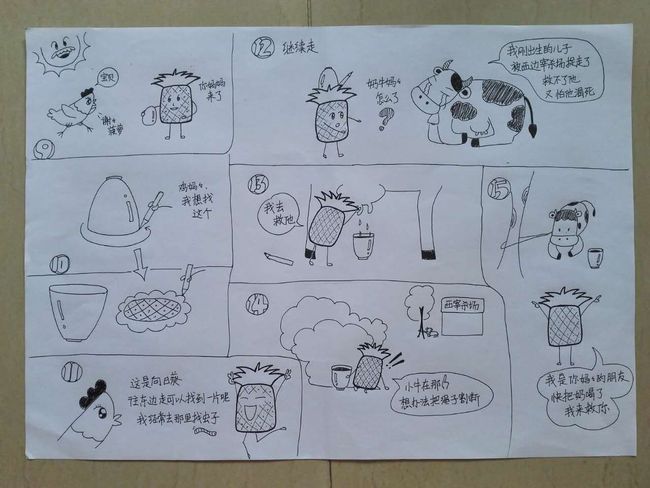 宝贝
谢々
菠萝
你妈妈
来了
9
鸡妈々,
我想找
这个
11
这是向日葵
往东边走可以找到一片呢
我经常去那里找虫子
12
继续走
奶牛妈々
怎么了
我刚出生的儿子
被西边宰杀场捉走了
救不了他
又怕他渴死
13
我去
救他
14
西宰杀场
小牛在那
想办法把绳子割断
15
我是你妈々的朋友
快把奶喝了
我来救你